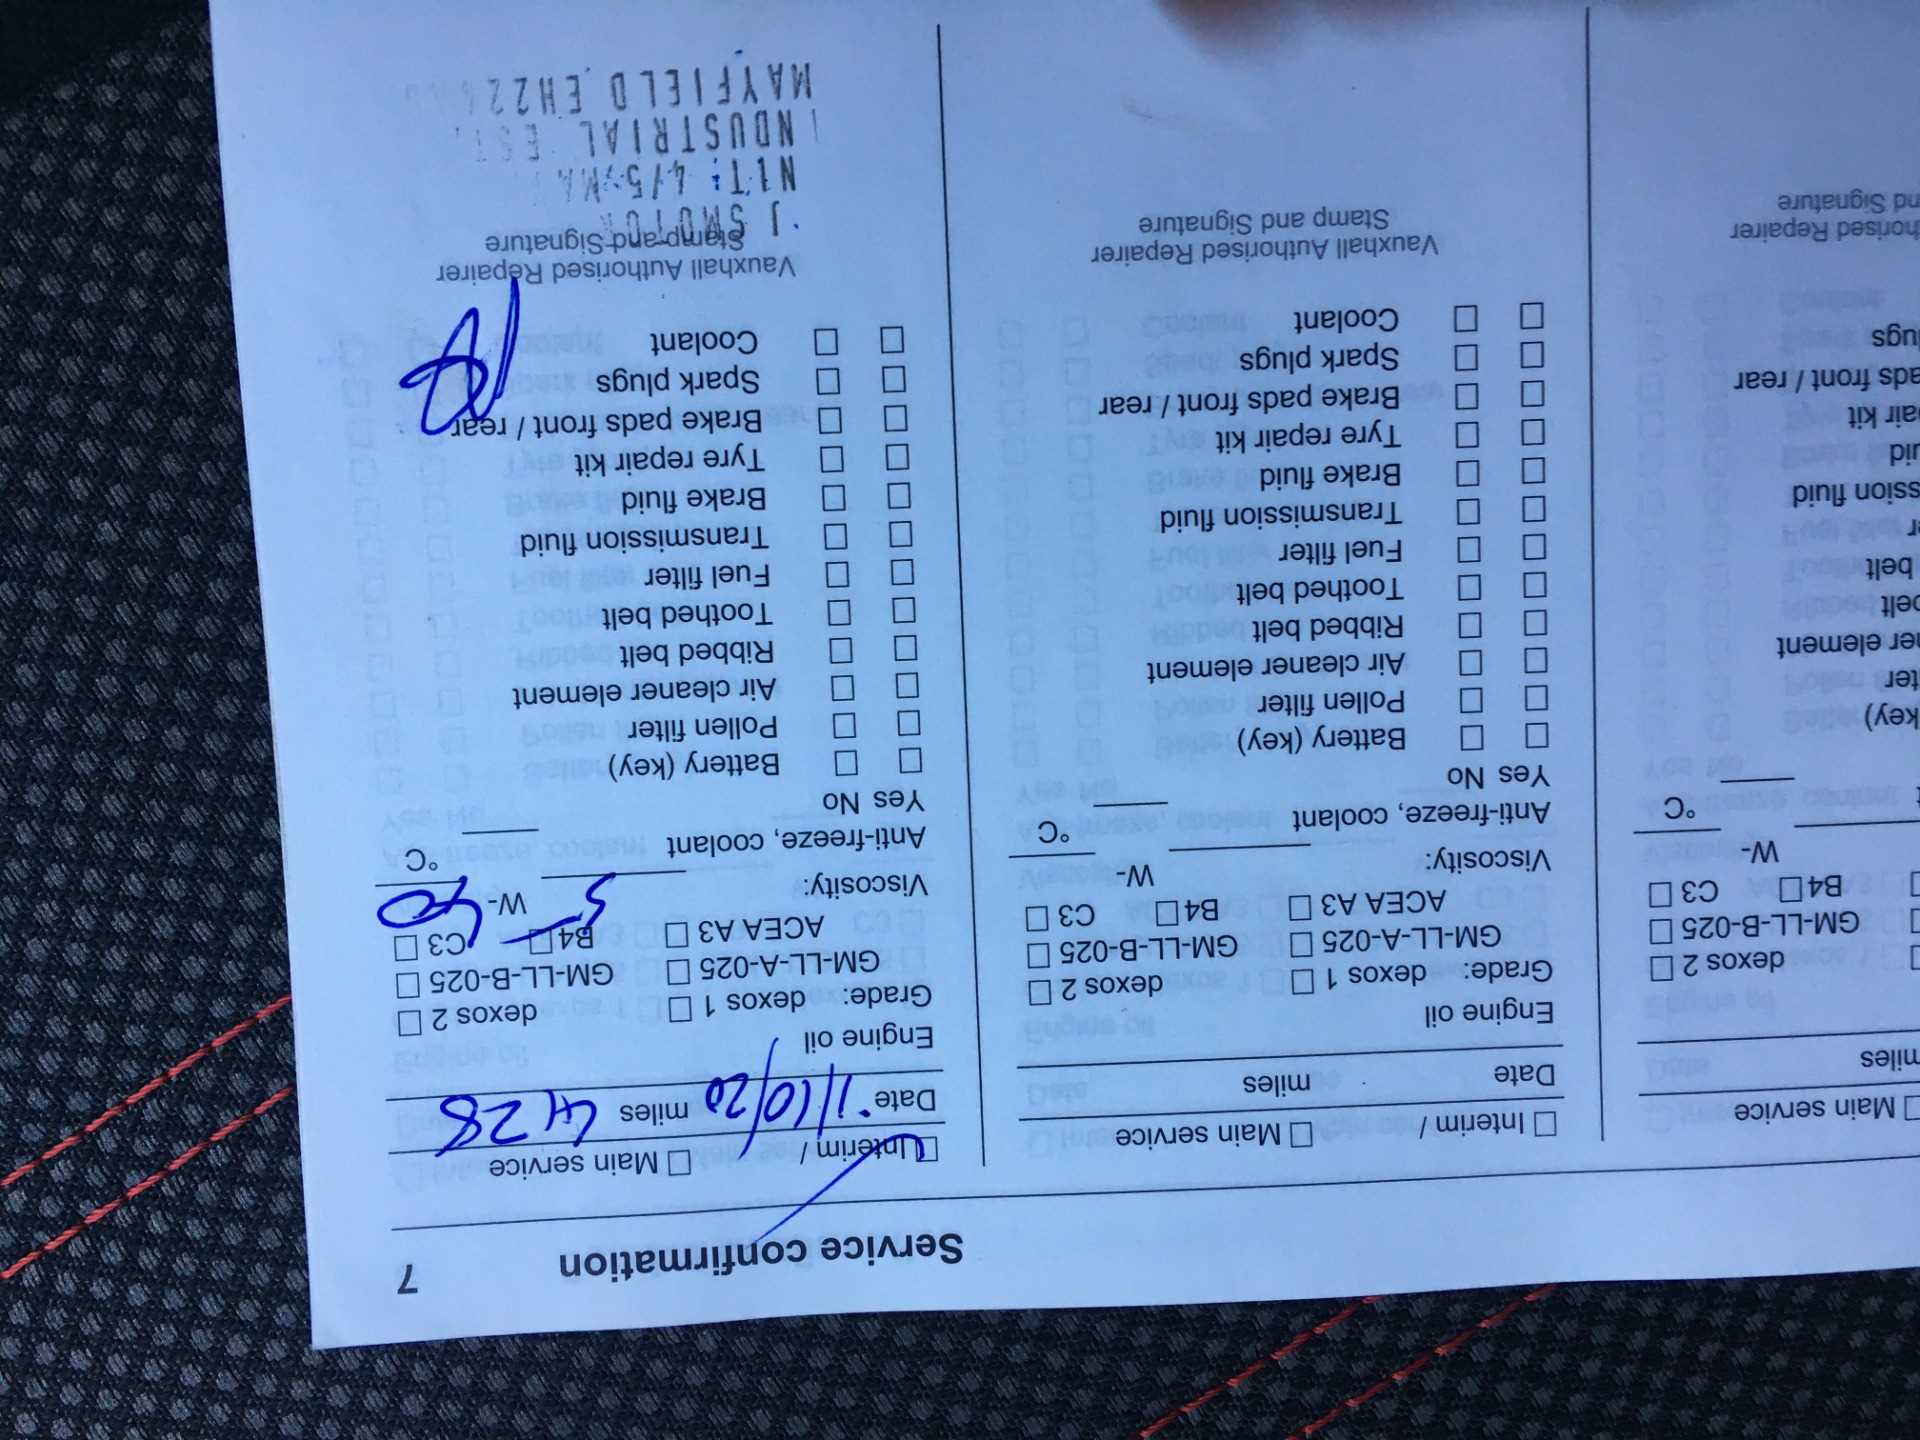 7
Service confirmation
miles
Main service
°C
W-
B4 C3
GM-LL-B-025
dexos 2
Interim / Main service
Date miles
Engine oil
Grade: dexos 1 dexos 2
GM-LL-A-025 GM-LL-B-025
ACEA A3 B4 C3
Viscosity: W-
Anti-freeze, coolant °C
Yes No
Battery (key)
Pollen filter
Air cleaner element
Ribbed belt
Toothed belt
Fuel filter
Transmission fluid
Brake fluid
Tyre repair kit
Brake pads front / rear
Spark plugs
Coolant
Vauxhall Authorised Repairer
Stamp and Signature
Interim / Main service
Date 1/10/20 miles 4428
Engine oil
Grade: dexos 1 dexos 2
GM-LL-A-025 GM-LL-B-025
ACEA A3 B4 C3
Viscosity: 5 W- 40
Anti-freeze, coolant °C
Yes No
Battery (key)
Pollen filter
Air cleaner element
Ribbed belt
Toothed belt
Fuel filter
Transmission fluid
Brake fluid
Tyre repair kit
Brake pads front / rear
Spark plugs
Coolant
Vauxhall Authorised Repairer
Stamp and Signature
4/5
NDUSTRIAL
MAYFIELD EH22